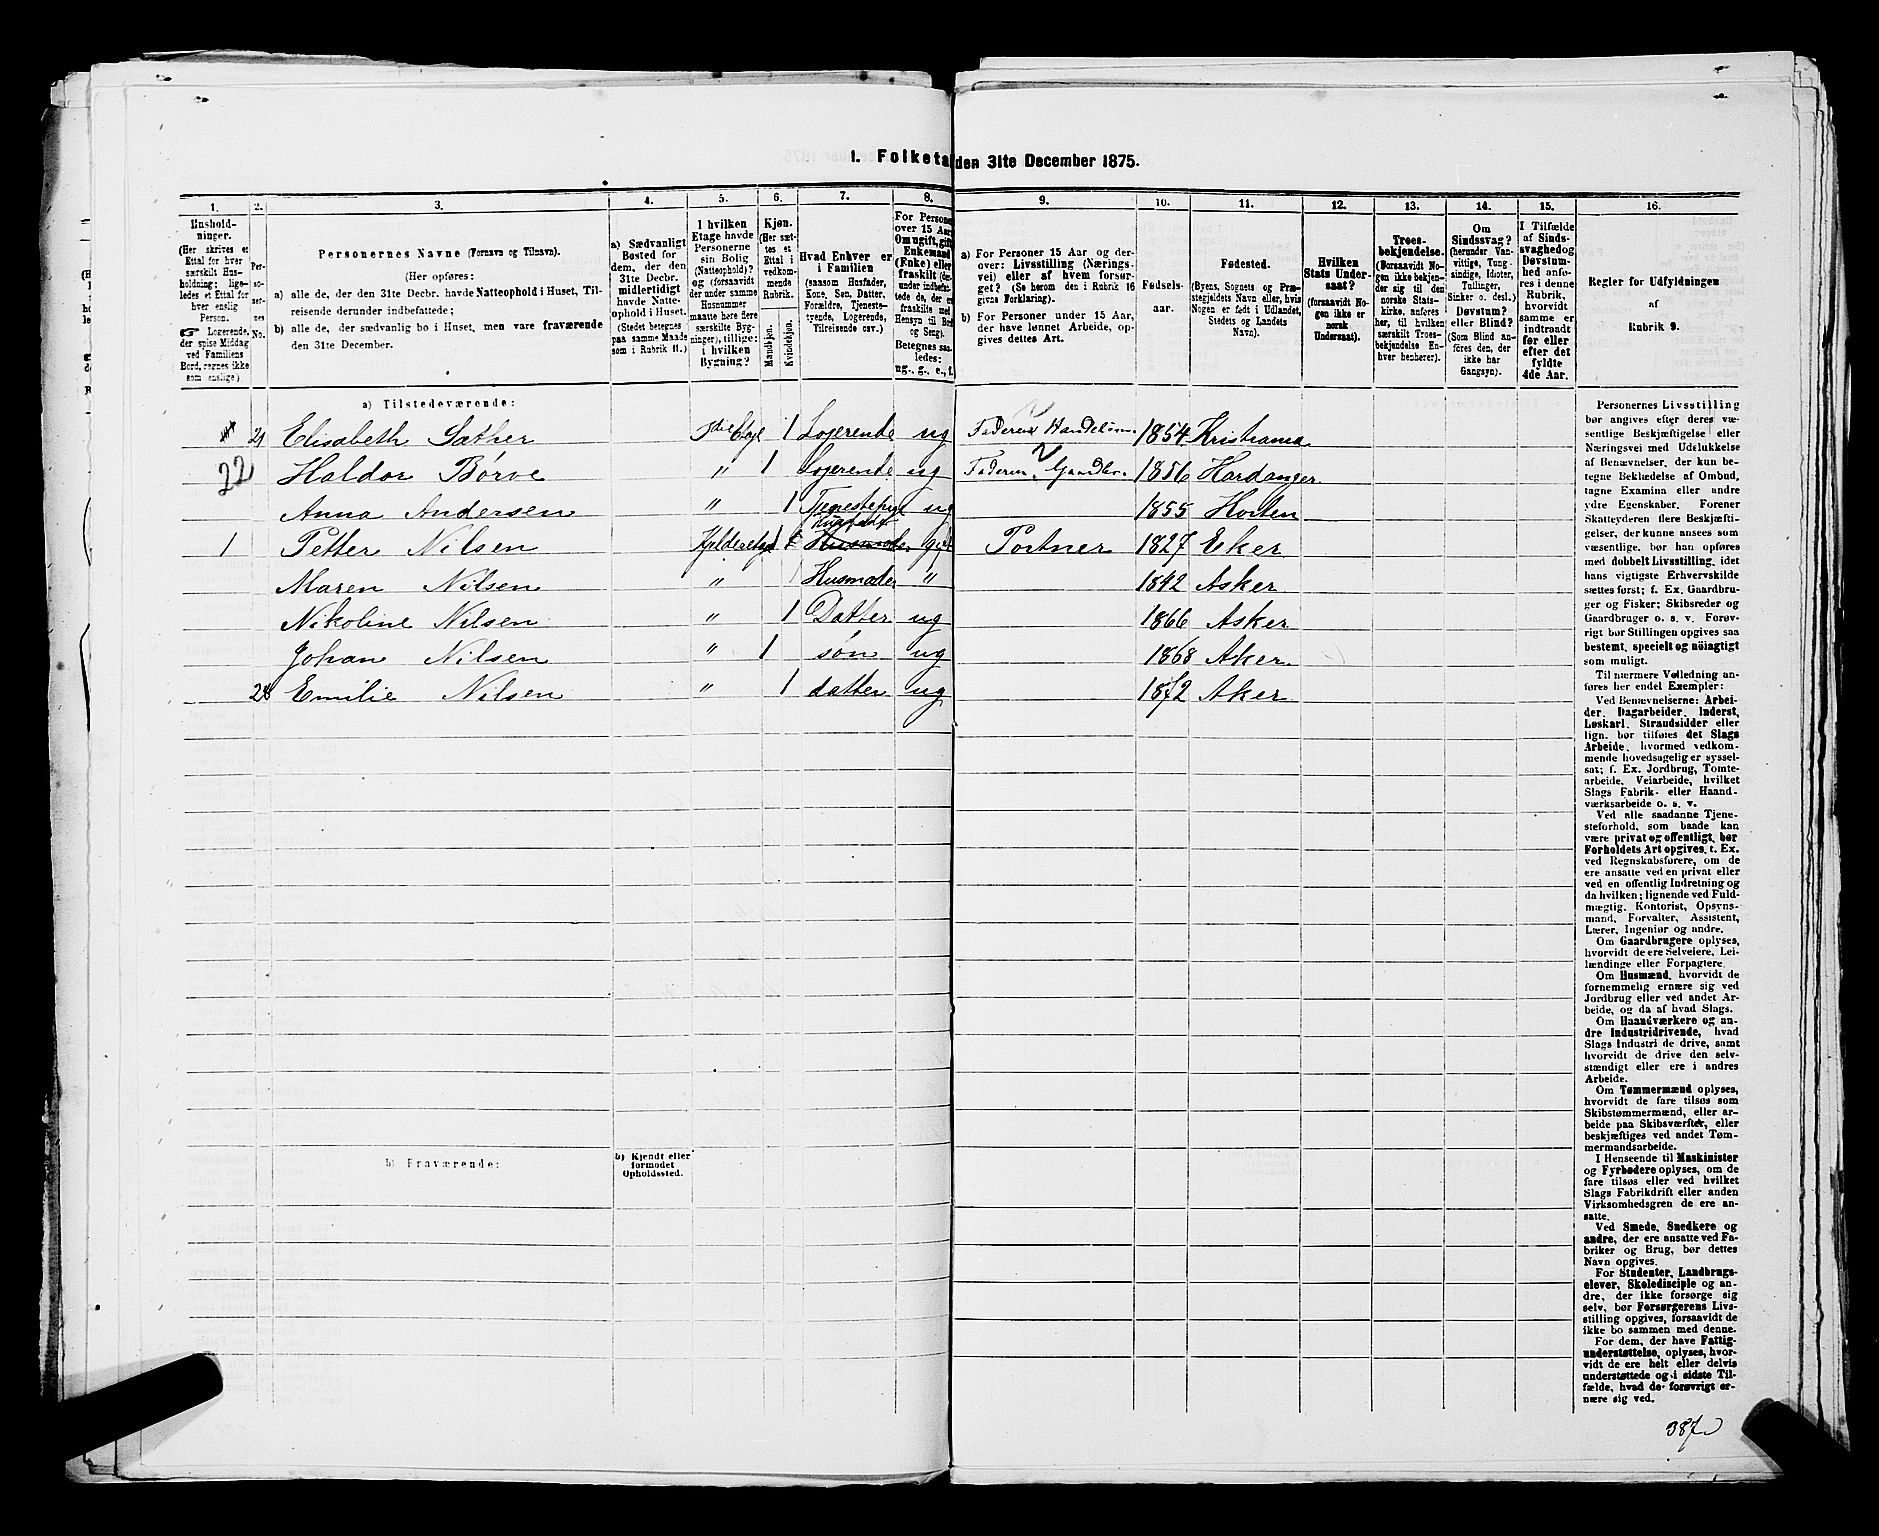 1. Folketa den 31te December 1875.
1.
2.
3.
4.
5.
6.
7.
8.
9.
10.
11.
12.
13.
14.
15.
16.
Hushold-
ninger.
(Her skrives et
Ettal for hver
særskilt Hus-
holdning; lige-
ledes et Ettal for
hver enslig
Person.
☞ Logerende,
der spise Middag
ved Familiens
Bord, regnes ikke
som enslige)
Per-
so-
ner-
nes
No.
Personernes Navne (Fornavn og Tilnavn).
(Her opføres:
a) alle de, der den 31te Decbr. havde Natteophold i Huset, Til-
reisende derunder indbefattede;
b) alle de, der sædvanlig bo i Huset, men vare fraværende
den 31te December.
a) Sædvanligt
Bosted for
dem, der den
31te Decbr.
midlertidigt
havde Natte-
ophold i Huset.
(Stedet betegnes
paa samme Maade
som i Rubrik 11.)
I hvilken
Etage havde
Personerne
sin Bolig
(Natteophold)?
og (forsaavidt
der under samme
Husnummer
maatte høre flere
særskilte Byg-
ninger), tillige:
i hvilken
Bygning?
Kjøn.
(Her sæt-
tes et
Ettal i
vedkom-
mende
Rubrik.
Mandkjøn.
Kvindekjøn.
Hvad Enhver er
i Familien
(saasom Husfader,
Kone, Søn, Datter,
Forældre, Tjeneste-
tyende, Logerende,
Tilreisende osv.)
For Personer
over 15 Aar:
Om ugift, gift,
Enkemand
(Enke) eller
fraskilt (de-
Hensyn til Bord
og Seng).
Betegnes saa-
ledes:
ug., g., e., f.
a) For Personer 15 Aar og der-
over: Livsstilling (Nærings-
vei) eller af hvem forsør-
get? (Se herom den i Rubrik 16
givne Forklaring).
b) For Personer under 15 Aar,
der have lønnet Arbeide, op-
gives dettes Art.
Fødsels-
aar.
Fødested.
(Byens, Sognets og Præ-
stegjeldets Navn eller, hvis
Nogen er født i Udlandet,
Stedets og Landets
Navn).
Hvilken
Stats Under-
saat?
(forsaavidt No-
gen ikke er
norsk
Undersaat).
Troes-
bekjendelse.
(Forsaavidt No-
gen ikke bekjen-
der sig til den
norske Stats-
kirke, anføres
her, til hvilken
særskilt Troes-
bekjendelse En-
hver henhører).
Om
Sindssvag?
(herunder Van-
vittige, Tung-
sindige, Idioter,
Tullinger,
Sinker o. desl.)
Døvstum?
eller Blind?
(Som Blind an-
føres den, der
ikke har
Gangsyn).
I Tilfælde
af Sinds-
svaghed og
Døvstum-
hed anfø-
res i denne
Rubrik,
hvorvidt
samme er
indtraadt
før eller
efter det
fyldte
4de Aar.
Regler for Udfyldningen
af
Rubrik 9.
a) Tilstedeværende:
21 Elisabeth Sæther 3die Etage 1 Lojerende ug Faderen Handelsm. 1854 Kristiania
22 Haldor Børve " 1 Lojerende ug Faderen Gaardbr. 1856 Hardanger
Anna Andersen " 1 ug 1855 Horten
1 Petter Nilsen 1 Husfader gift Portner 1827 Eker
Maren Nilsen " 1 Husmoder " 1842 Asker
Nikoline Nilsen " 1 Datter ug 1866 Asker
Johan Nilsen " 1 søn ug 1868 Aker
28 Emilie Nilsen " 1 datter ug 1872 Aker
b) Fraværende:
b) Kjendt eller
formodet
Opholdssted.
Personernes Livsstilling
bør angives efter deres væ-
sentlige Beskjæftigelse eller
Næringsvei med Udelukkelse
af Benævnelser, der kun be-
tegne Beklædelse af Ombud,
tagne Examina eller andre
ydre Egenskaber. Forener
Skatteyderen flere Beskjæfti-
gelser, der kunne ansees som
væsentlige, bør han opføres
med dobbelt Livsstilling, idet
hans vigtigste Erhvervskilde
sættes først; f. Ex. Gaardbru-
ger og Fisker; Skibsreder og
Gaardbruger o. s. v. Forøv-
rigt bør Stillingen opgives saa
bestemt, specielt og nøiagtigt
som muligt.
Til nærmere Veiledning an-
føres her endel Exempler:
Ved Benævnelserne: Arbei-
der, Dagarbeider, Inderst,
Løskarl, Strandsidder eller
lign. bør tilføies det Slags
Arbeide, hvormed vedkom-
mende hovedsagelig er syssel-
sat; f. Ex. Jordbrug, Tomte-
arbeide, Veiarbeide, hvilket
Slags Fabrik- eller Haand-
værksarbeide o. s. v.
Ved alle saadanne Tjene-
steforhold, som baade kan
være privat og offentligt, bør
Forholdets Art opgives, t. Ex.
ved Regnskabsførere, om de
ere ansatte ved en privat eller
ved en offentlig Indretning og
da hvilken; lignende ved Fuld-
mægtig, Kontorist, Opsyns-
mand, Forvalter, Assistent,
Lærer, Ingeniør og andre.
Om Gaardbrugere oplyses,
hvorvidt de ere Selveiere, Lei-
lændinge eller Forpagtere.
Om Husmænd, hvorvidt de
fornemmelig ernære sig ved
Jordbrug eller ved andet Ar-
beide, og da af hvad Slags.
Om Haandværkere og an-
dre Industridrivende, hvad
Slags Industri de drive, samt
hvorvidt de drive den selv-
stændigt eller ere i andres
Arbeide.
Om Tømmermænd oplyses,
hvorvidt de fare tilsøs som
Skibstømmermænd, eller ar-
beide paa Skibsværfter, eller
beskjæftiges ved andet Tøm-
mermandsarbeide.
I Henseende til Maskinister
og Fyrbødere oplyses, om de
fare tilsøs eller ved hvilket
Slags Fabrikdrift eller anden
Virksomhedsgren de ere an-
satte.
Ved Smede, Snedkere og
andre, der ere ansatte ved Fa-
briker og Brug, bør dettes
Navn opgives.
For Studenter, Landbrugs-
elever, Skoledisciple og an-
dre, der ikke forsørge sig
selv, bør Forsørgerens Livs-
stilling opgives, forsaavidt de
ikke bo sammen med denne.
For dem, der have Fattig-
understøttelse, oplyses, hvor-
vidt de ere helt eller delvis
understøttede og i sidste Til-
fælde, hvad de forøvrigt er-
nære sig ved.